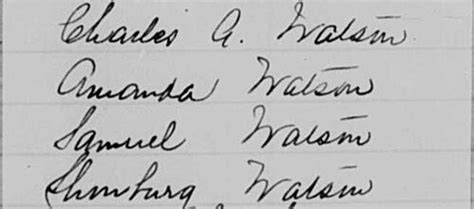 Charles A. Watson
Amanda Watson
Samuel Watson
Watson